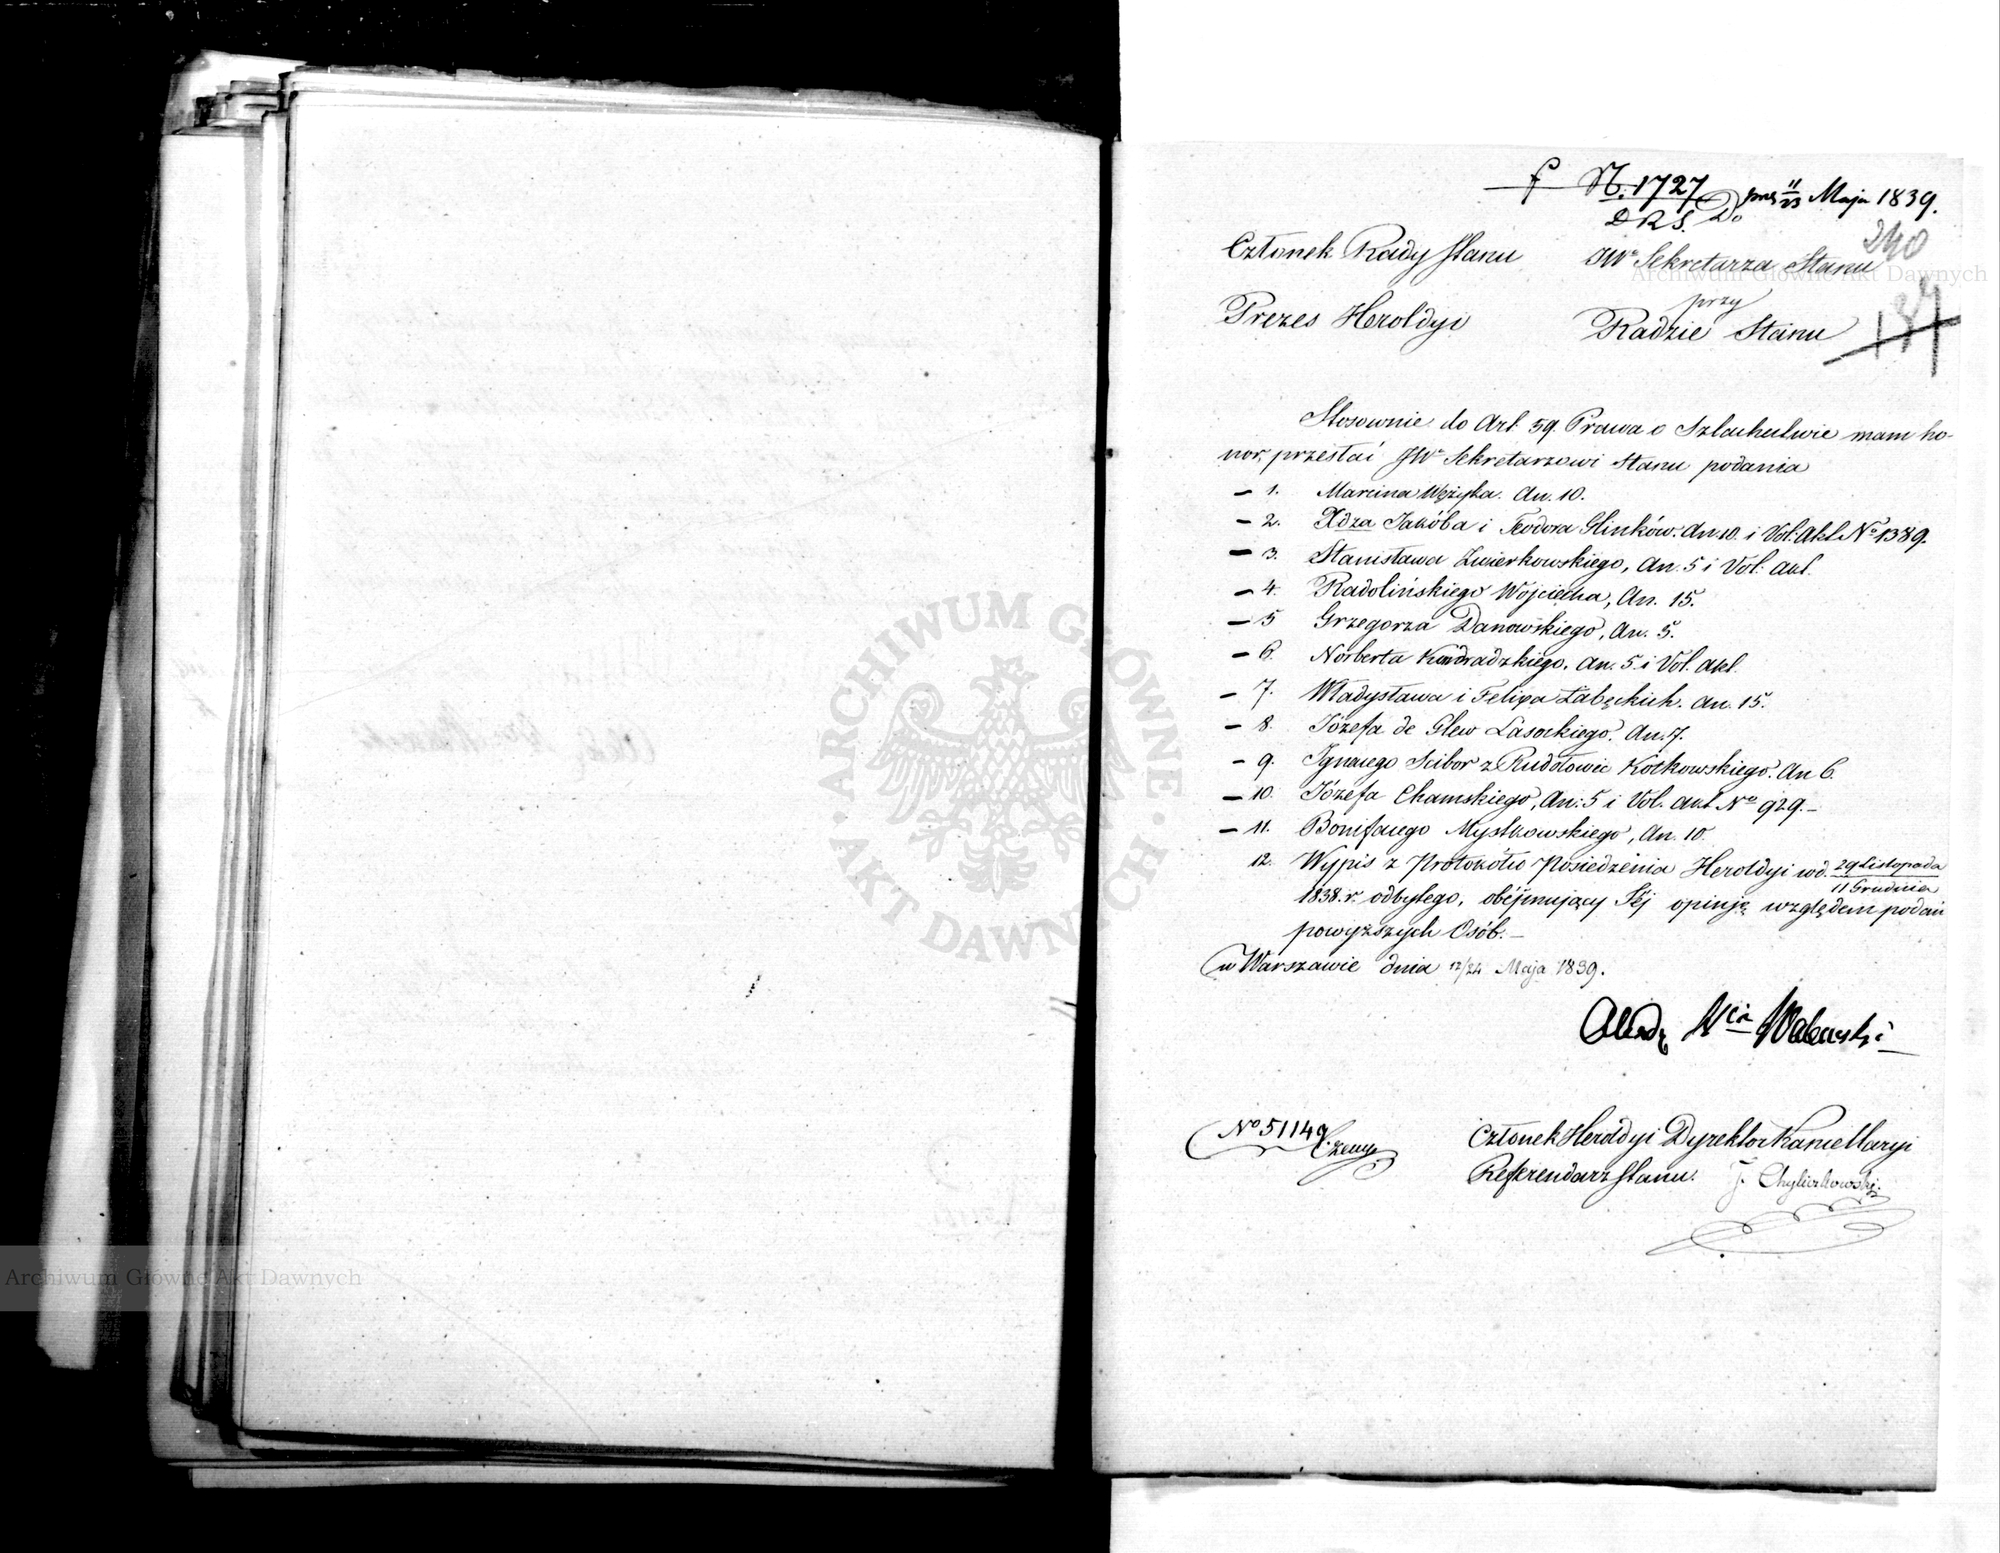 N. 1727 prez 11/23 Maja 1839.
D R S. Do
240
Członek Rady Stanu JWo Sekretarza Stanu
przy
Prezes Heroldyi Radzie Stanu
Stosownie do Art. 59. Prawa o Szlachectwie mam ho-
nor, przesłać JWu Sekretarzowi Stanu podania
– 1. Marcina Wężyka. An. 10.
– 2. Xdza Jakóba i Teodora Glinków. An. 10. i Vol. Akt. No 1389.
– 3. Stanisława Zwierkowskiego, An. 5 i Vol. akt.
– 4. Radolińskiego Wojciecha, An. 15.
– 5 Grzegorza Danowskiego, An. 5.
– 6. Norberta Kondradzkiego. An. 5. i Vol. akt.
– 7. Władysława i Felixa Łabęckich. An. 15.
– 8. Józefa de Glew Lasockiego. An. 7.
– 9. Ignacego Scibor z Rudołowic Kotkowskiego. An 6.
– 10. Józefa Chamskiego, An: 5 i Vol. akt No 929. –
– 11. Bonifacego Mystkowskiego, An. 10.
12. Wypis z Protokółu Posiedzenia Heroldyi w d. 29 Listopada / 11 Grudnia
1838. r. odbytego, obéjmujący Jéj opinję względem podań
powyższych Osób. –
w Warszawie dnia 12/24 Maja 1839.
Walewski
No 51149.
Członek Heroldyi Dyrektor Kancellaryi
Referendarz Stanu. J. Chyliczkowski.
ARCHIWUM GŁÓWNE
AKT DAWNYCH
Archiwum Główne Akt Dawnych
Archiwum Główne Akt Dawnych